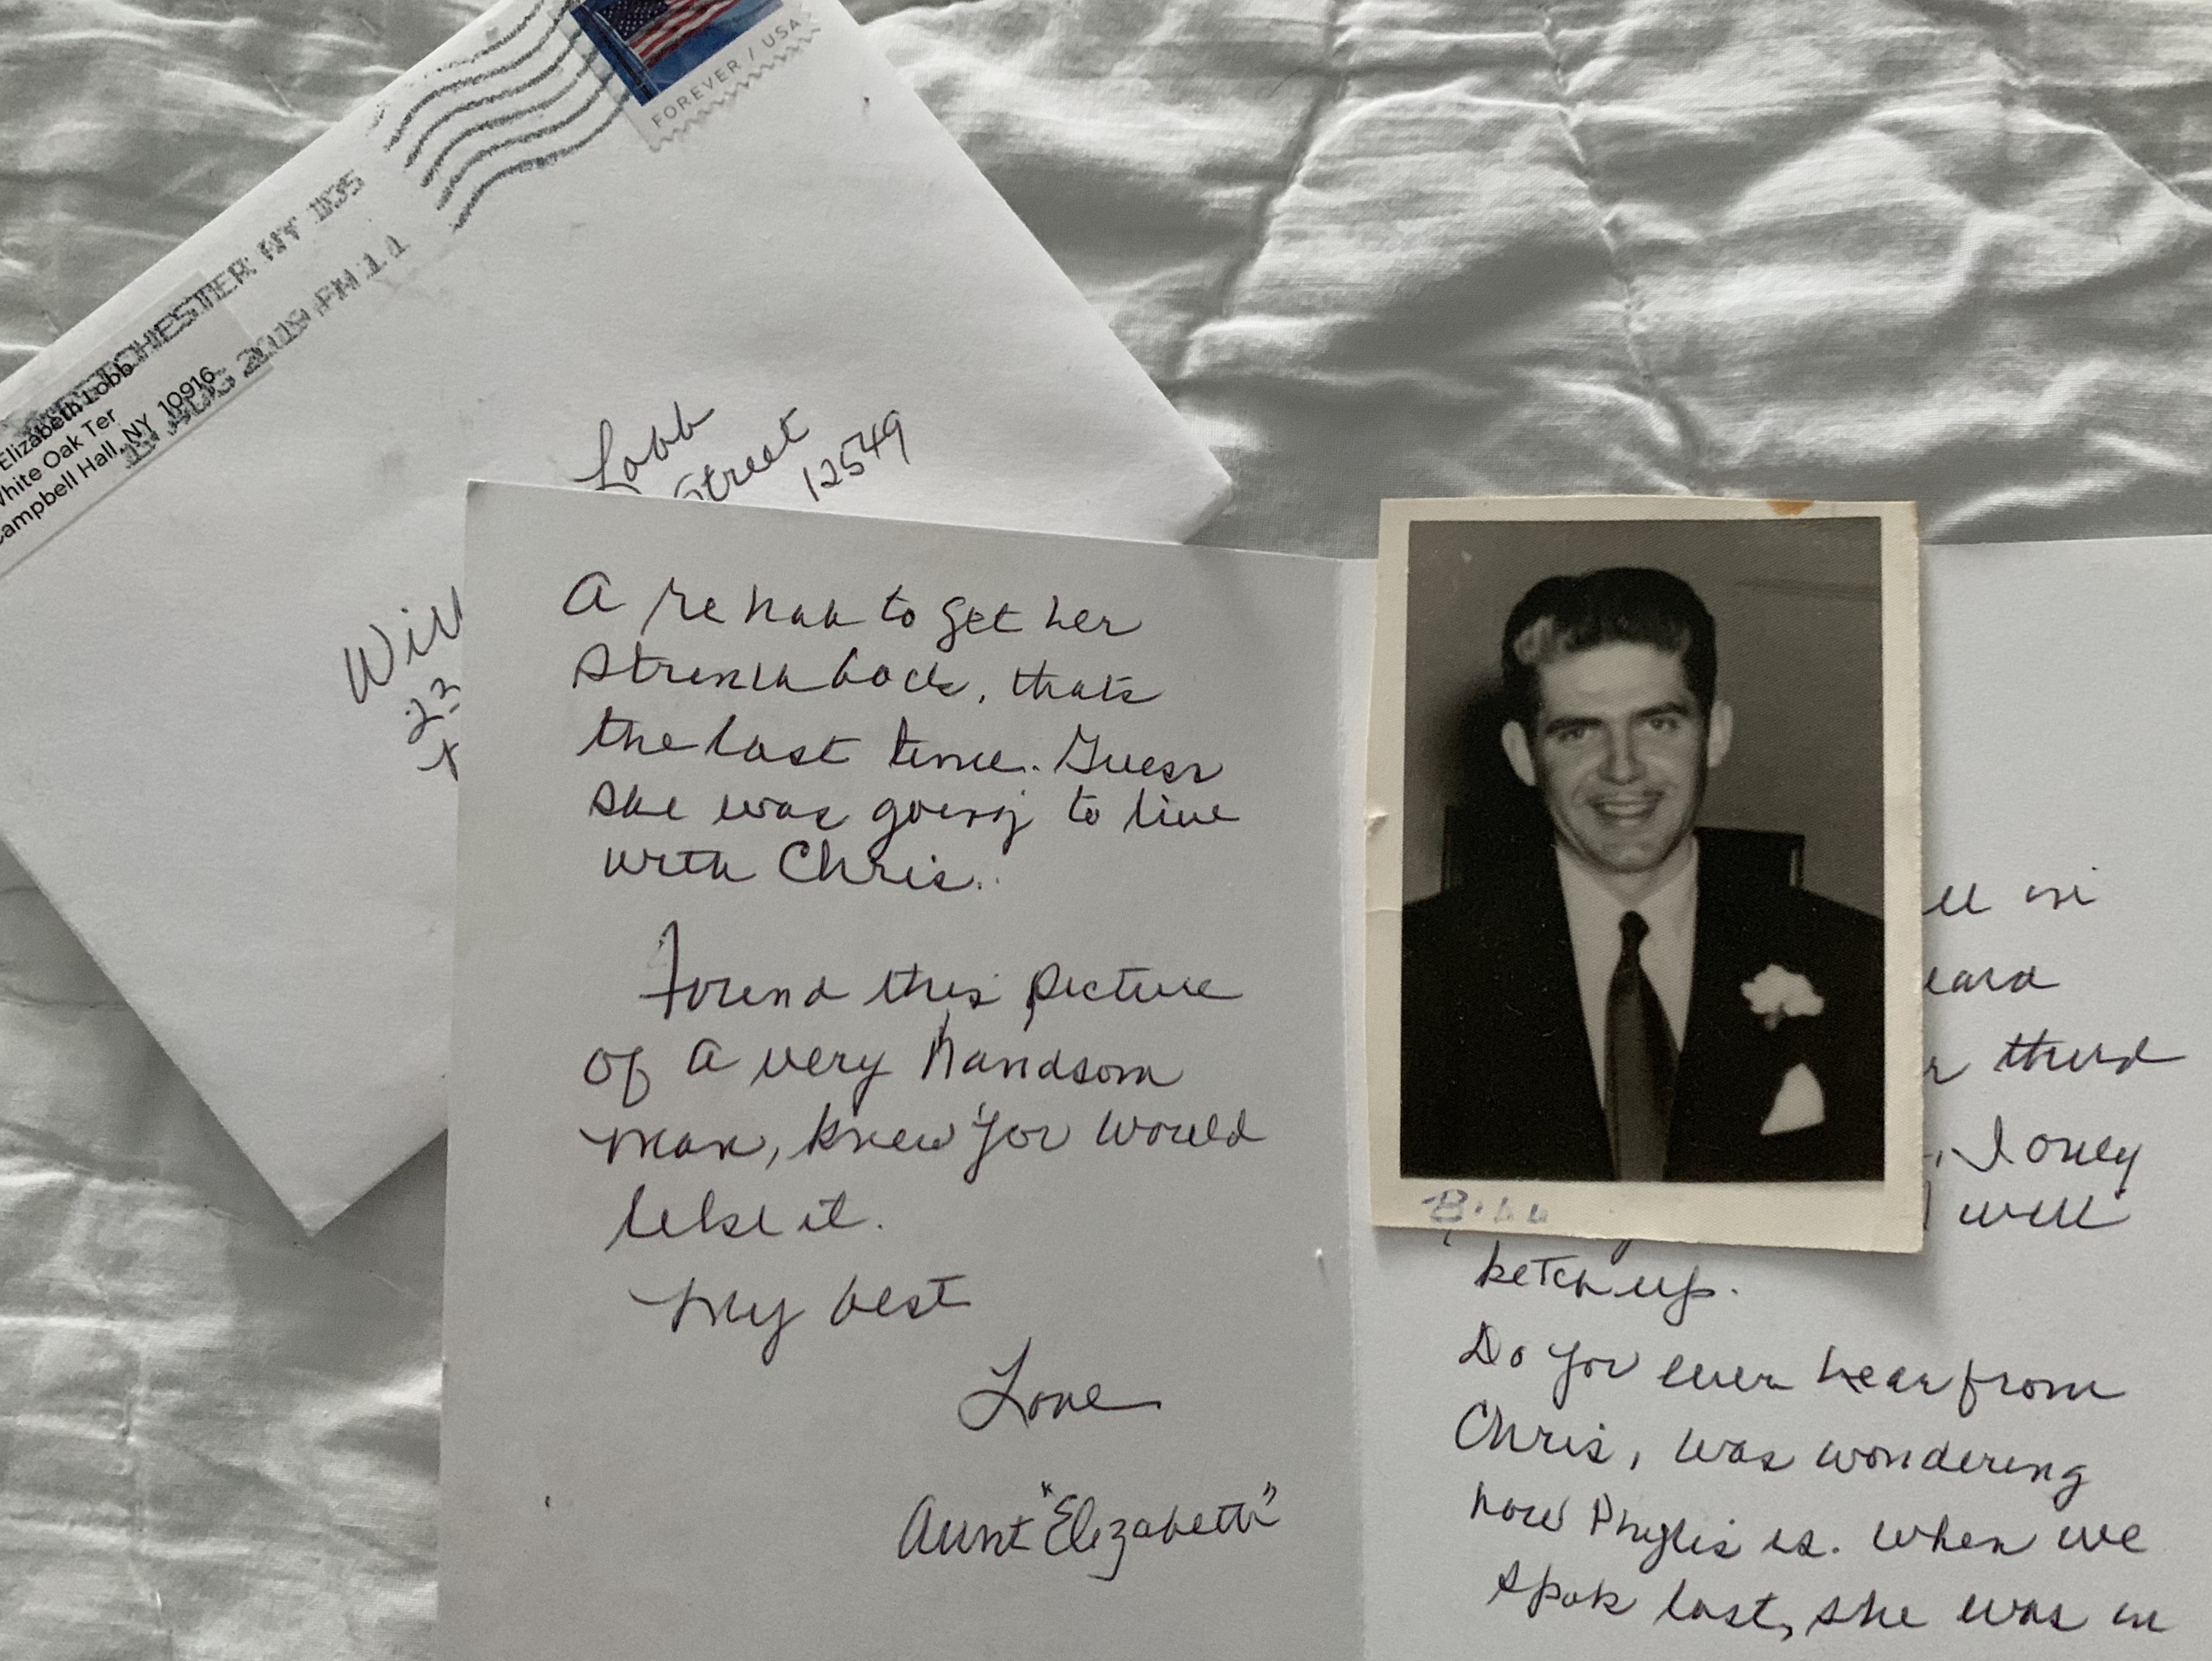 FOREVER / USA
CHESTER NY 105
AUG 2019 PM 1 1
Elizabeth Lobb
White Oak Ter
Campbell Hall, NY 10916
Lobb
Street
12549
Will
23
a rehab to get her
Strenth back, thats
the last time. Guess
she was going to live
with Chris..
found this picture
of a very handsom
man, knew you would
like it.
My best
Love
Aunt "Elizabeth"
Bill
ell
eard
third
, I only
will
ketch up.
Do you ever hear from
Chris, was wondering
how Phylis is. When we
spok last, she was in